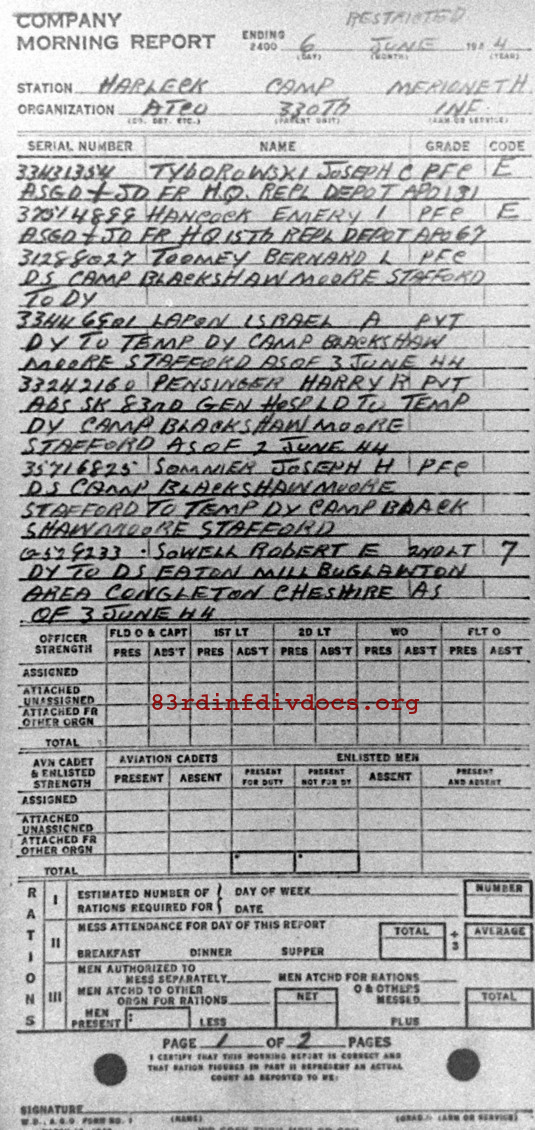 COMPANY RESTRICTED
MORNING REPORT ENDING 2400 6 JUNE 194 4
(DAY) (MONTH) (YEAR)
STATION HARLECK CAMP MERIONETH
ORGANIZATION ATCO 330TH INF
(CO. DET. ETC.) (PARENT UNIT) (ARM OR SERVICE)
SERIAL NUMBER NAME GRADE CODE
33431354 TYBOROWSKI JOSEPH C PFC E
ASGD + JD FR H.Q. REPL DEPOT APO 131
37514899 HANCOCK EMERY I PFC E
ASGD + JD FR HQ 15TH REPL DEPOT APO 67
31288027 TOOMEY BERNARD L PFC
DS CAMP BLACKSHAW MOORE STAFFORD
TO DY
33446901 LAPON ISRAEL A PVT
DY TO TEMP DY CAMP BLACKSHAW
MOORE STAFFORD AS OF 3 JUNE 44
33242160 PENSINGER HARRY R PVT
ABS SK 83RD GEN HOSP LD TO TEMP
DY CAMP BLACKSHAW MOORE
STAFFORD AS OF 2 JUNE 44
35716825 SOMNIER JOSEPH H PFC
DS CAMP BLACKSHAW MOORE
STAFFORD TO TEMP DY CAMP BLACK
SHAW MOORE STAFFORD
SOWELL ROBERT E 2ND LT 7
DY TO DS EATON MILL BUGLAWTON
AREA CONGLETON CHESHIRE AS
OF 3 JUNE 44
OFFICER STRENGTH FLD O & CAPT 1ST LT 2D LT WO FLT O
PRES ABS'T PRES ABS'T PRES ABS'T PRES ABS'T PRES ABS'T
ASSIGNED
ATTACHED UNASSIGNED
ATTACHED FR OTHER ORGN
83rdinfdivdocs.org
TOTAL
AVN CADET & ENLISTED STRENGTH AVIATION CADETS ENLISTED MEN
PRESENT ABSENT PRESENT FOR DUTY PRESENT NOT FOR DY ABSENT PRESENT AND ABSENT
ASSIGNED
ATTACHED UNASSIGNED
ATTACHED FR OTHER ORGN
TOTAL
RATIONS
I ESTIMATED NUMBER OF RATIONS REQUIRED FOR { DAY OF WEEK NUMBER
DATE
II MESS ATTENDANCE FOR DAY OF THIS REPORT TOTAL ÷ 3 AVERAGE
BREAKFAST DINNER SUPPER
III MEN AUTHORIZED TO MESS SEPARATELY MEN ATCHD FOR RATIONS
MEN ATCHD TO OTHER ORGN FOR RATIONS NET O & OTHERS MESSED TOTAL
MEN PRESENT : LESS PLUS
PAGE 1 OF 2 PAGES
I CERTIFY THAT THIS MORNING REPORT IS CORRECT AND
THAT RATION FIGURES IN PART II REPRESENT AN ACTUAL
COUNT AS REPORTED TO ME:
SIGNATURE
W.D., A.G.O. FORM NO. 1 (NAME) (GRADE) (ARM OR SERVICE)